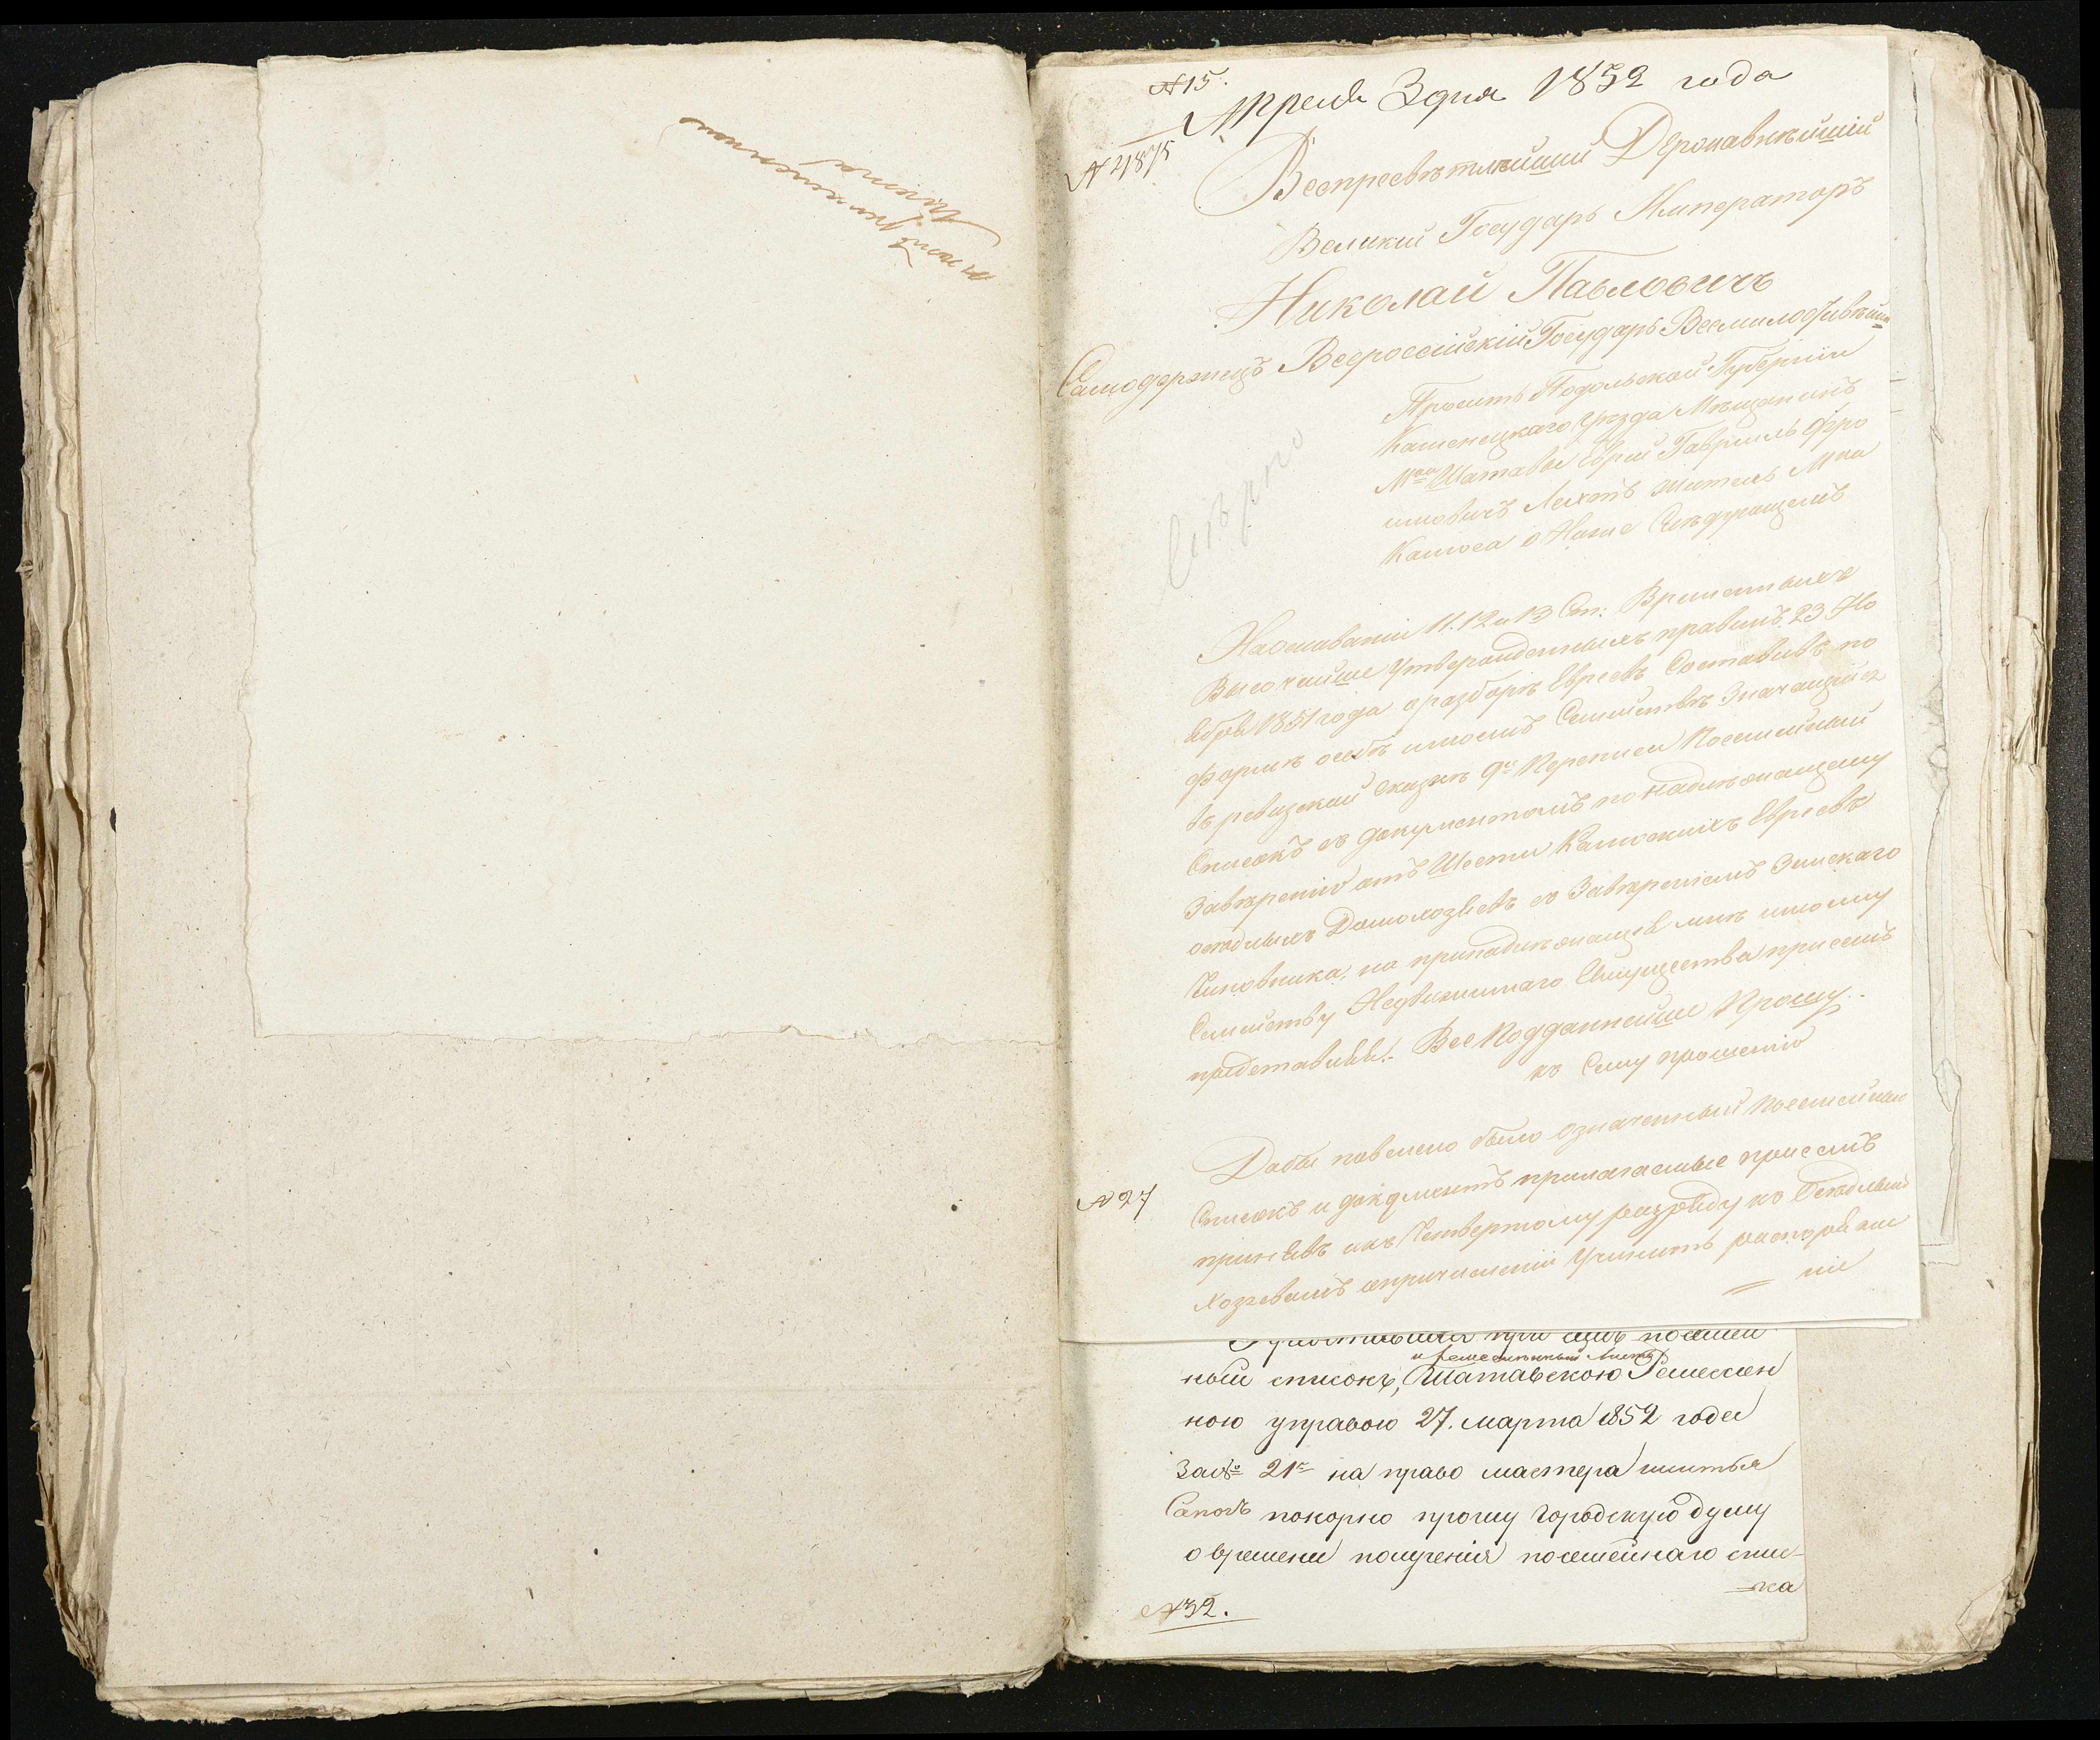 № 15.
Апреля 3 дня 1852 года
№ 4875
Всепресветлейший Державнейшій
Великій Государь Императоръ
Николай Павловичъ
Самодержецъ Всероссійскій Государь Всемилостивейш
Проситъ Подольской Губерніи
Каменецкаго Уезда Мещанинъ
Мка Шатавы Еврей Гавриилъ Фро
имовичъ Лехтъ житель Мка
о Ниже Следующемъ
На основаніи 11. 12 и 13 Ст: Временныхъ
Высочайше Утвержденныхъ правилъ 23 Но
ября 1851 года о разборе Евреевъ Составивъ по
форме о себе и моемъ Семействе Значащійся
въ ревизской Сказке 9й Переписи Посемейный
Списокъ съ документомъ по надлежащему
Заверенію отъ Шести Евреевъ
оседлыхъ Домохозяевъ съ Завереніемъ Земскаго
Чиновника, на принадлежащее мне и моему
Семейству Недвижимаго Имущества при семъ
представляя. Всеподданнейше Прошу.
къ Сему прошенію
Дабы повелено было означенный Посемейный
Списокъ и документъ прилагаемые при семъ
№ 27
принявъ къ Четвертому разряду къ Оседлымъ
хозяевамъ о причисленіи Учинить распоряже
ніе
при семъ посемей
и ремесленный листъ
ный списокъ, Шатавскою Ремеслен
ною управою 27. марта 1852 года
за № 21 на право мастера шитья
Сапогъ покорно прошу Городскую думу
о времени полученія посемейнаго спис-
ка
№ 32.